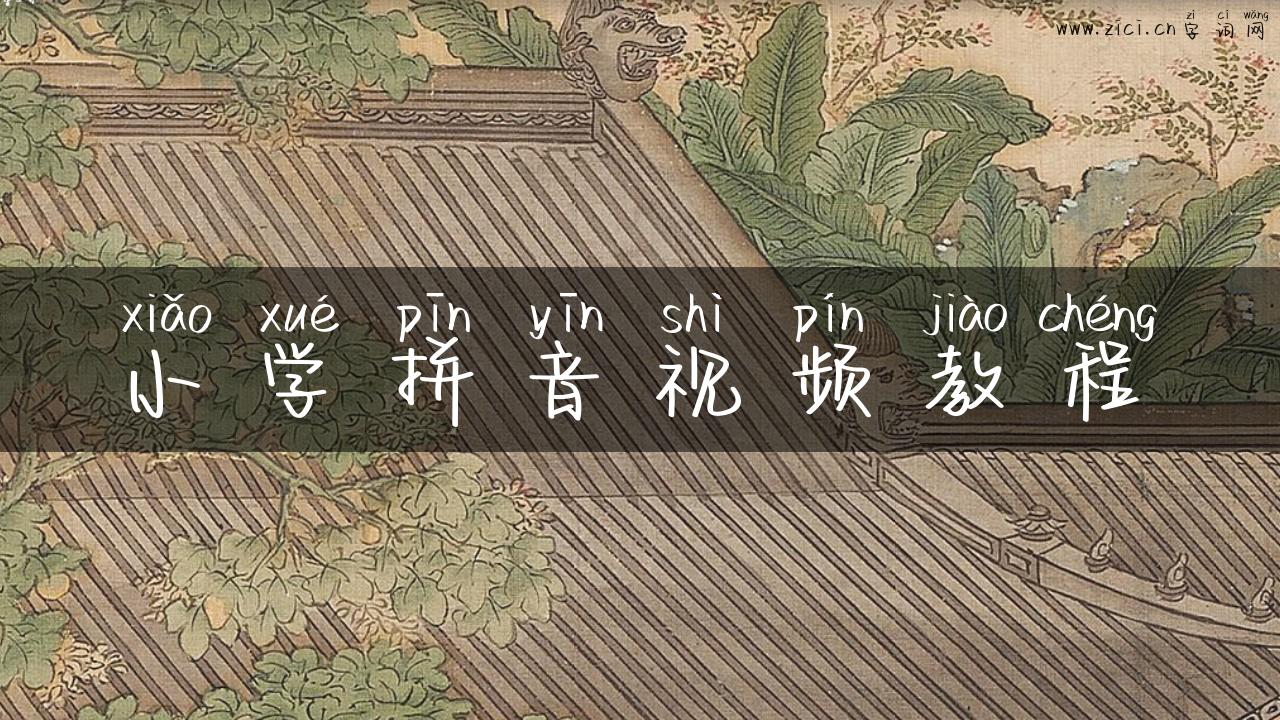 zì cí wǎng
www.zici.cn 字词网
xiǎo xué pīn yīn shì pín jiào chéng
小学拼音视频教程